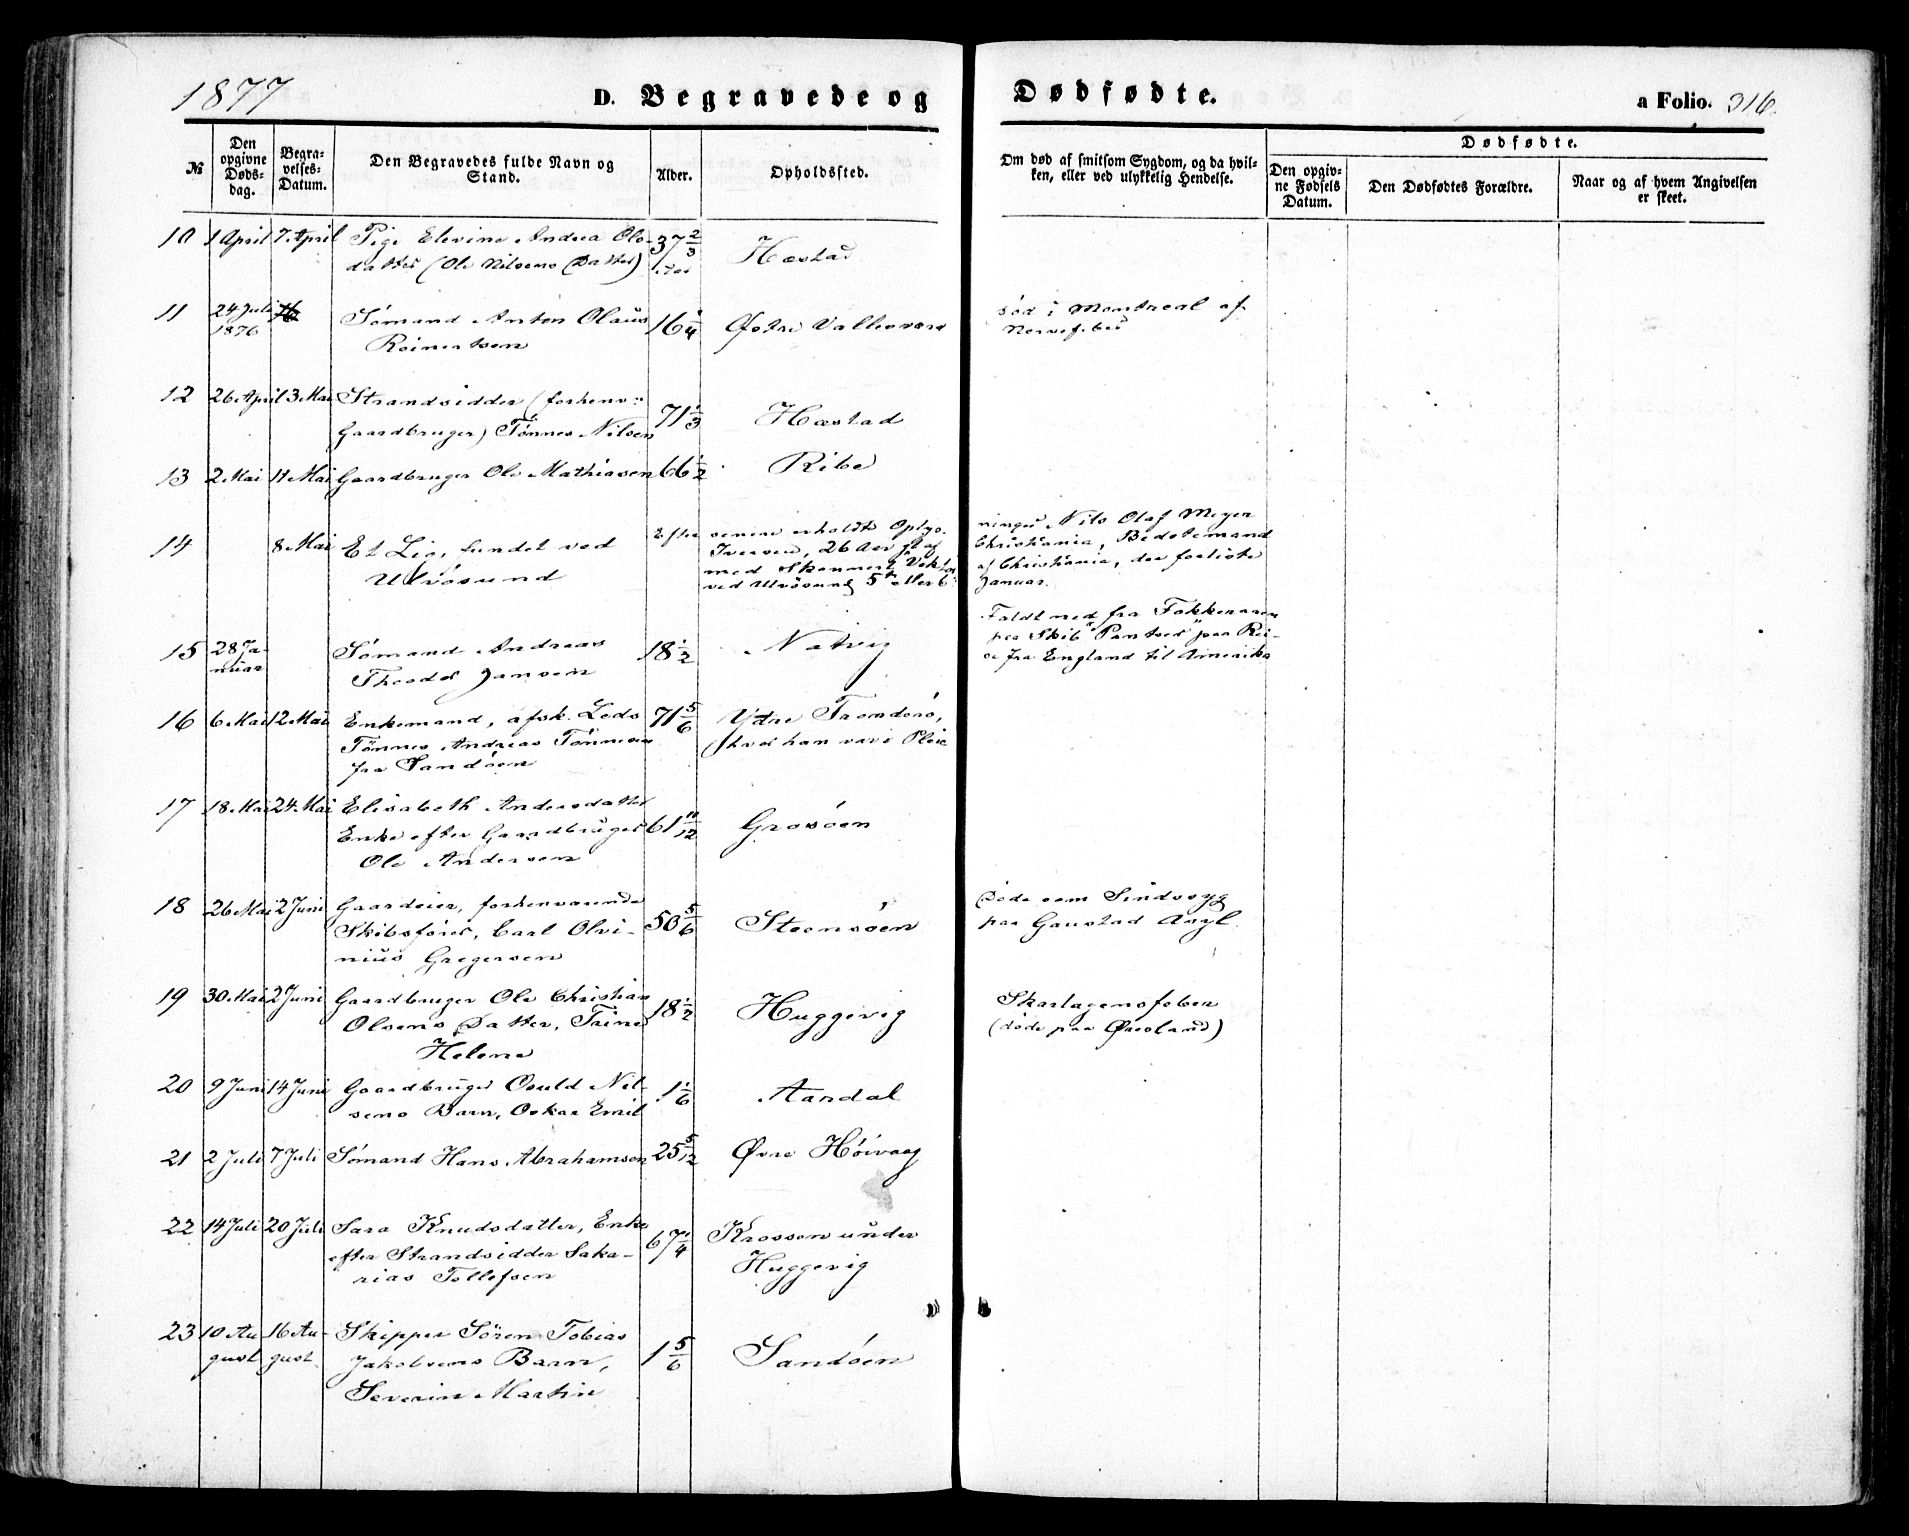 1877
D. Begravede og Dødfødte.
a Folio. 316.
№
Den opgivne Døds-dag.
Begra-velses-Datum.
Den Begravedes fulde Navn og Stand.
Alder.
Opholdssted.
Om død af smitsom Sygdom, og da hvil-ken, eller ved ulykkelig Hendelse.
Dødfødte.
Den opgiv-ne Fødsels Datum.
Den Dødfødtes Forældre.
Naar og af hvem Angivelsen er skeet.
10 1 April 7 April Pige Elevine Andrea Ols- 37 2/3 Hæstad
datter (Ole Nilsens Datter) Aar
11 24 Juli Sømand Anton Olaus 16 1/4 Østre Vallesværd død i Montreal af
1876 Reinertsen Nervefeber
12 26 April 3 Mai Strandsidder (forhenv: 71 1/3 Hæstad
Gaardbruger) Tønnes Nilsen
13 2 Mai 11 Mai Gaardbruger Ole Mathiasen 66 1/2 Ribe
14 8 Mai Et Lig, fundet ved Efter senere erholdte Oplys- ninger Nils Olaf Meyer
Ulvøsund Iversen, 26 Aar gl. af Christiania, Bedstemand
med Skonnert af Christiania, der forliste
ved Ulvøsund 5te eller 6 Januar.
15 28 Ja- Sømand Andreas 18 1/2 Natvig Faldt ned fra Fokkeraaen
nuar Theodor Jansen paa Skib "Panther" paa Rei-
se fra England til Amerika
16 6 Mai 12 Mai Enkemand, afsk. Lods 71 5/6 Ydre Trondøró,
Tønnes Andreas Tønnesen hvor han var i Pleie
fra Sandøen
17 18 Mai 24 Mai Elisabeth Andersdatter 61 11/12 Grosøen
Enke efter Gaardbruger
Ole Andersen
18 26 Mai 2 Juni Gaardeier, forhenværende 50 5/6 Steensøen Døde som Sindssyg
Skibsfører, Carl Olvi- paa Gaustad Asyl.
nius Gregersen
19 30 Mai 2 Juni Gaardbruger Ole Christian 18 1/2 Huggevig Skarlagensfeber
Olsens Datter, Trine (døde paa Øresland)
Helene
20 9 Juni 14 Juni Gaardbruger Osuld Nil- 1 1/6 Aandal
sens Barn, Oskar Emil
21 2 Juli 7 Juli Sømand Hans Abrahamsen 25 5/12 Øvre Høivaag
22 14 Juli 20 Juli Sara Knudsdatter, Enke 67 1/4 Krossen under
efter Strandsidder Saka- Huggevig
rias Tollefsen
23 10 Au- 16 Au- Skipper Søren Tobias 1 5/6 Sandøen
gust gust. Jakobsens Barn,
Severin Martin